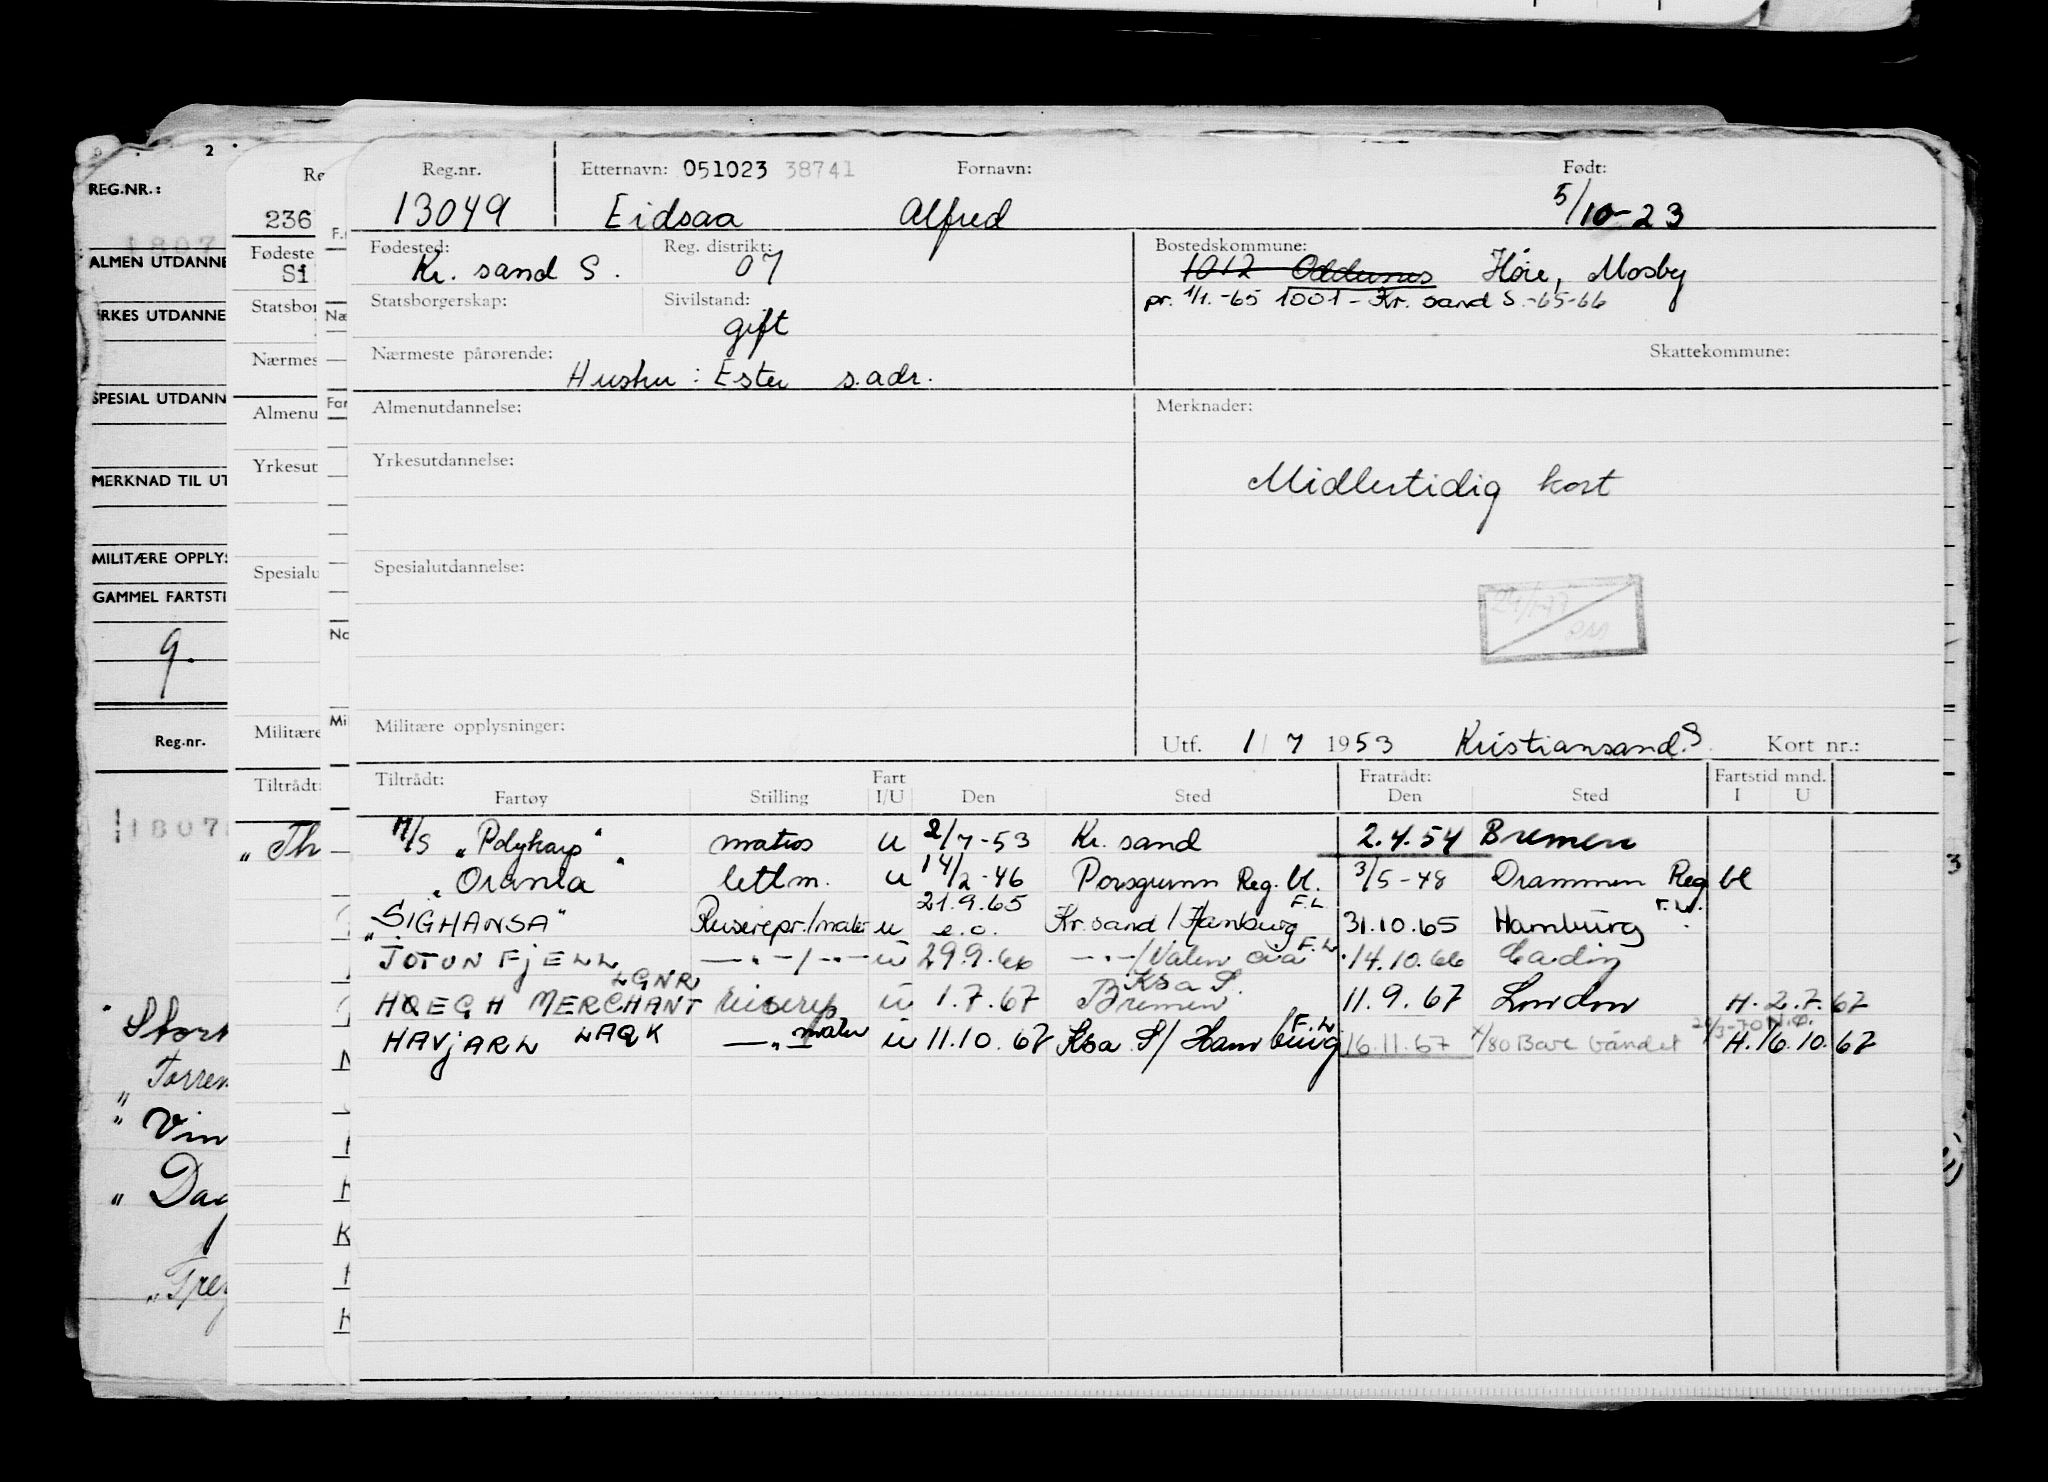 2
REG.NR.:
ALMEN UTDANNE
RKES UTDANNE
SPESIAL UTDANN
MERKNAD TIL UT
MILITÆRE OPPLYS
GAMMEL FARTSTI
9.
Reg.nr.
1807
236
Fødeste
Statsbor
Nærmes
Almenu
Yrkesut
Spesialu
Militære
Tiltrådt:
" Th
Reg.nr. Etternavn: 051023 38741 Fornavn: Født:
13049 Eidsaa Alfred 5/10-23
Fødested: Reg. distrikt: Bostedskommune:
Kr. sand S. 07 1012 Oddernes Høie, Mosby
Statsborgerskap: Sivilstand: pr. 1/1.-65 1001 - Kr. sand S.-65-66
gift
Nærmeste pårørende: Skattekommune:
Hustru: Ester s.adr.
Almenutdannelse: Merknader:
Yrkesutdannelse:
Midlertidig kort
Spesialutdannelse:
Militære opplysninger:
Utf. 1/7 1953 Kristiansand.S. Kort nr.:
Tiltrådt: Fart Fratrådt: Fartstid mnd.
Fartøy Stilling I/U Den Sted Den Sted I U
M/S "Polykarp" matros u 2/7-53 Kr. sand 2.4.54 Bremen
"Orania" lettm. u 14/2-46 Porsgrunn Reg. bl. 3/5-48 Drammen Reg bl
"SIGHANSA" Reiserepr./mater u 21.9.65 e.o. Kr.sand/Hamburg F.L. 31.10.65 Hamburg F.L.
JOTUNFJELL —"—/—"— u 29.9.66 —"—/Valencia F.L. 14.10.66 Cadiz
HØEGH MERCHANT LGNR reiserep u 1.7.67 Ksa S. Bremen 11.9.67 London H. 2.7.67
HAVJARL LAQK —"— mater u 11.10.67 Ksa S/Hamburg F.L 16.11.67 /80 Bare båndet H. 16.10.67